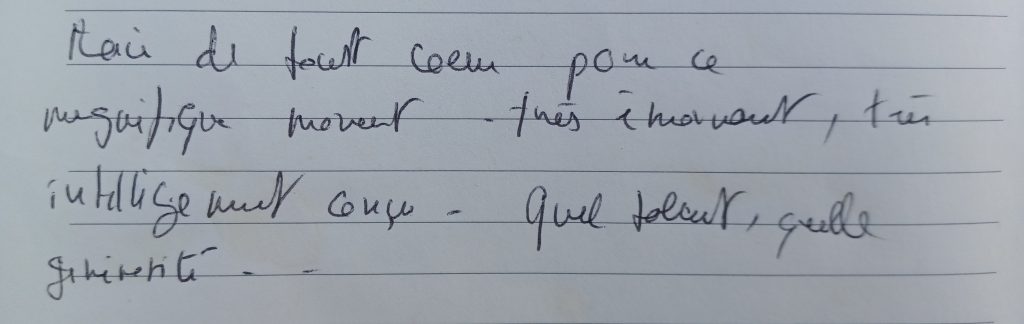 Merci de tout coeur pour ce
magnifique moment - très émouvant, très
intelligemment conçu - Quel talent, quelle
générosité - -